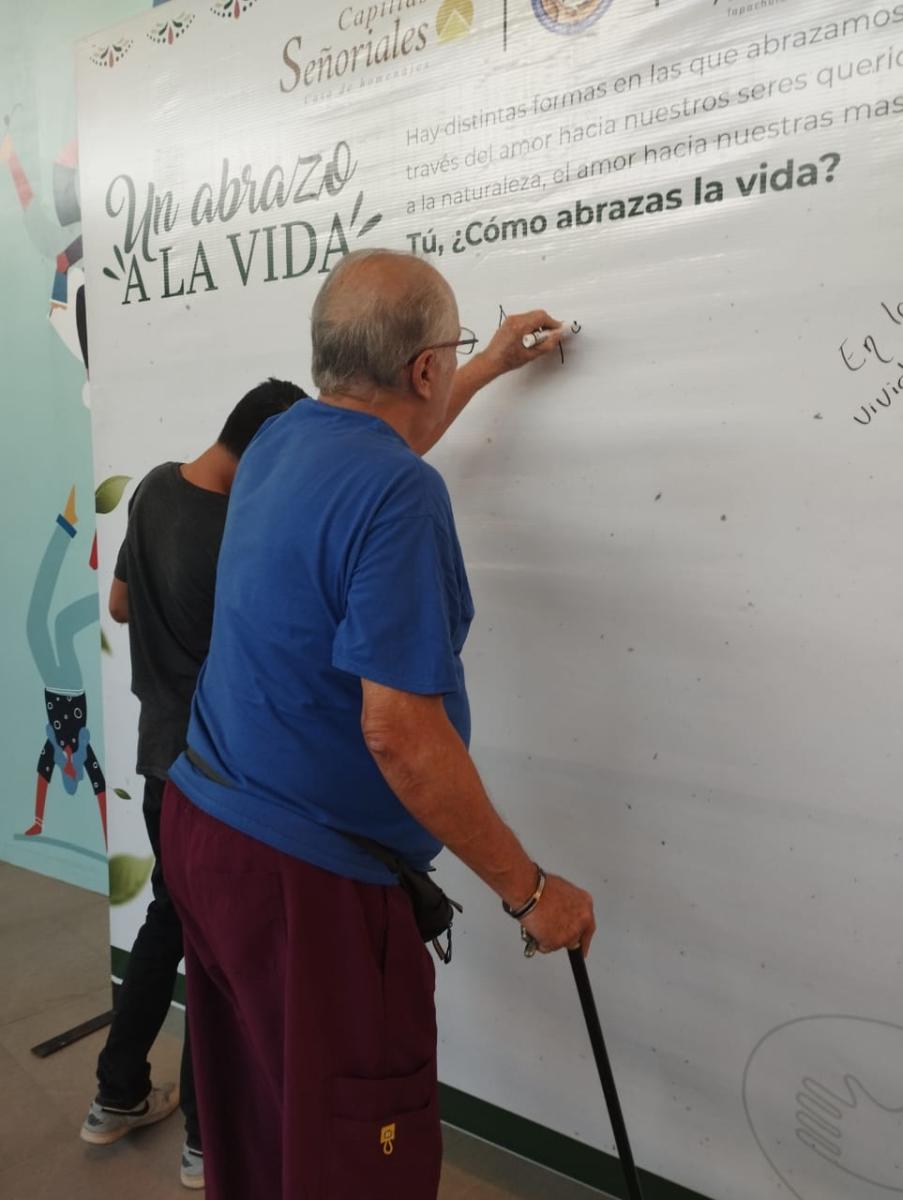 Capillas
Señoriales
Casa de homenajes
Tapachula
Un abrazo
A LA VIDA
Hay distintas formas en las que abrazamos
través del amor hacia nuestros seres queric
a la naturaleza, el amor hacia nuestras mas
Tú, ¿Cómo abrazas la vida?
En la
vivid